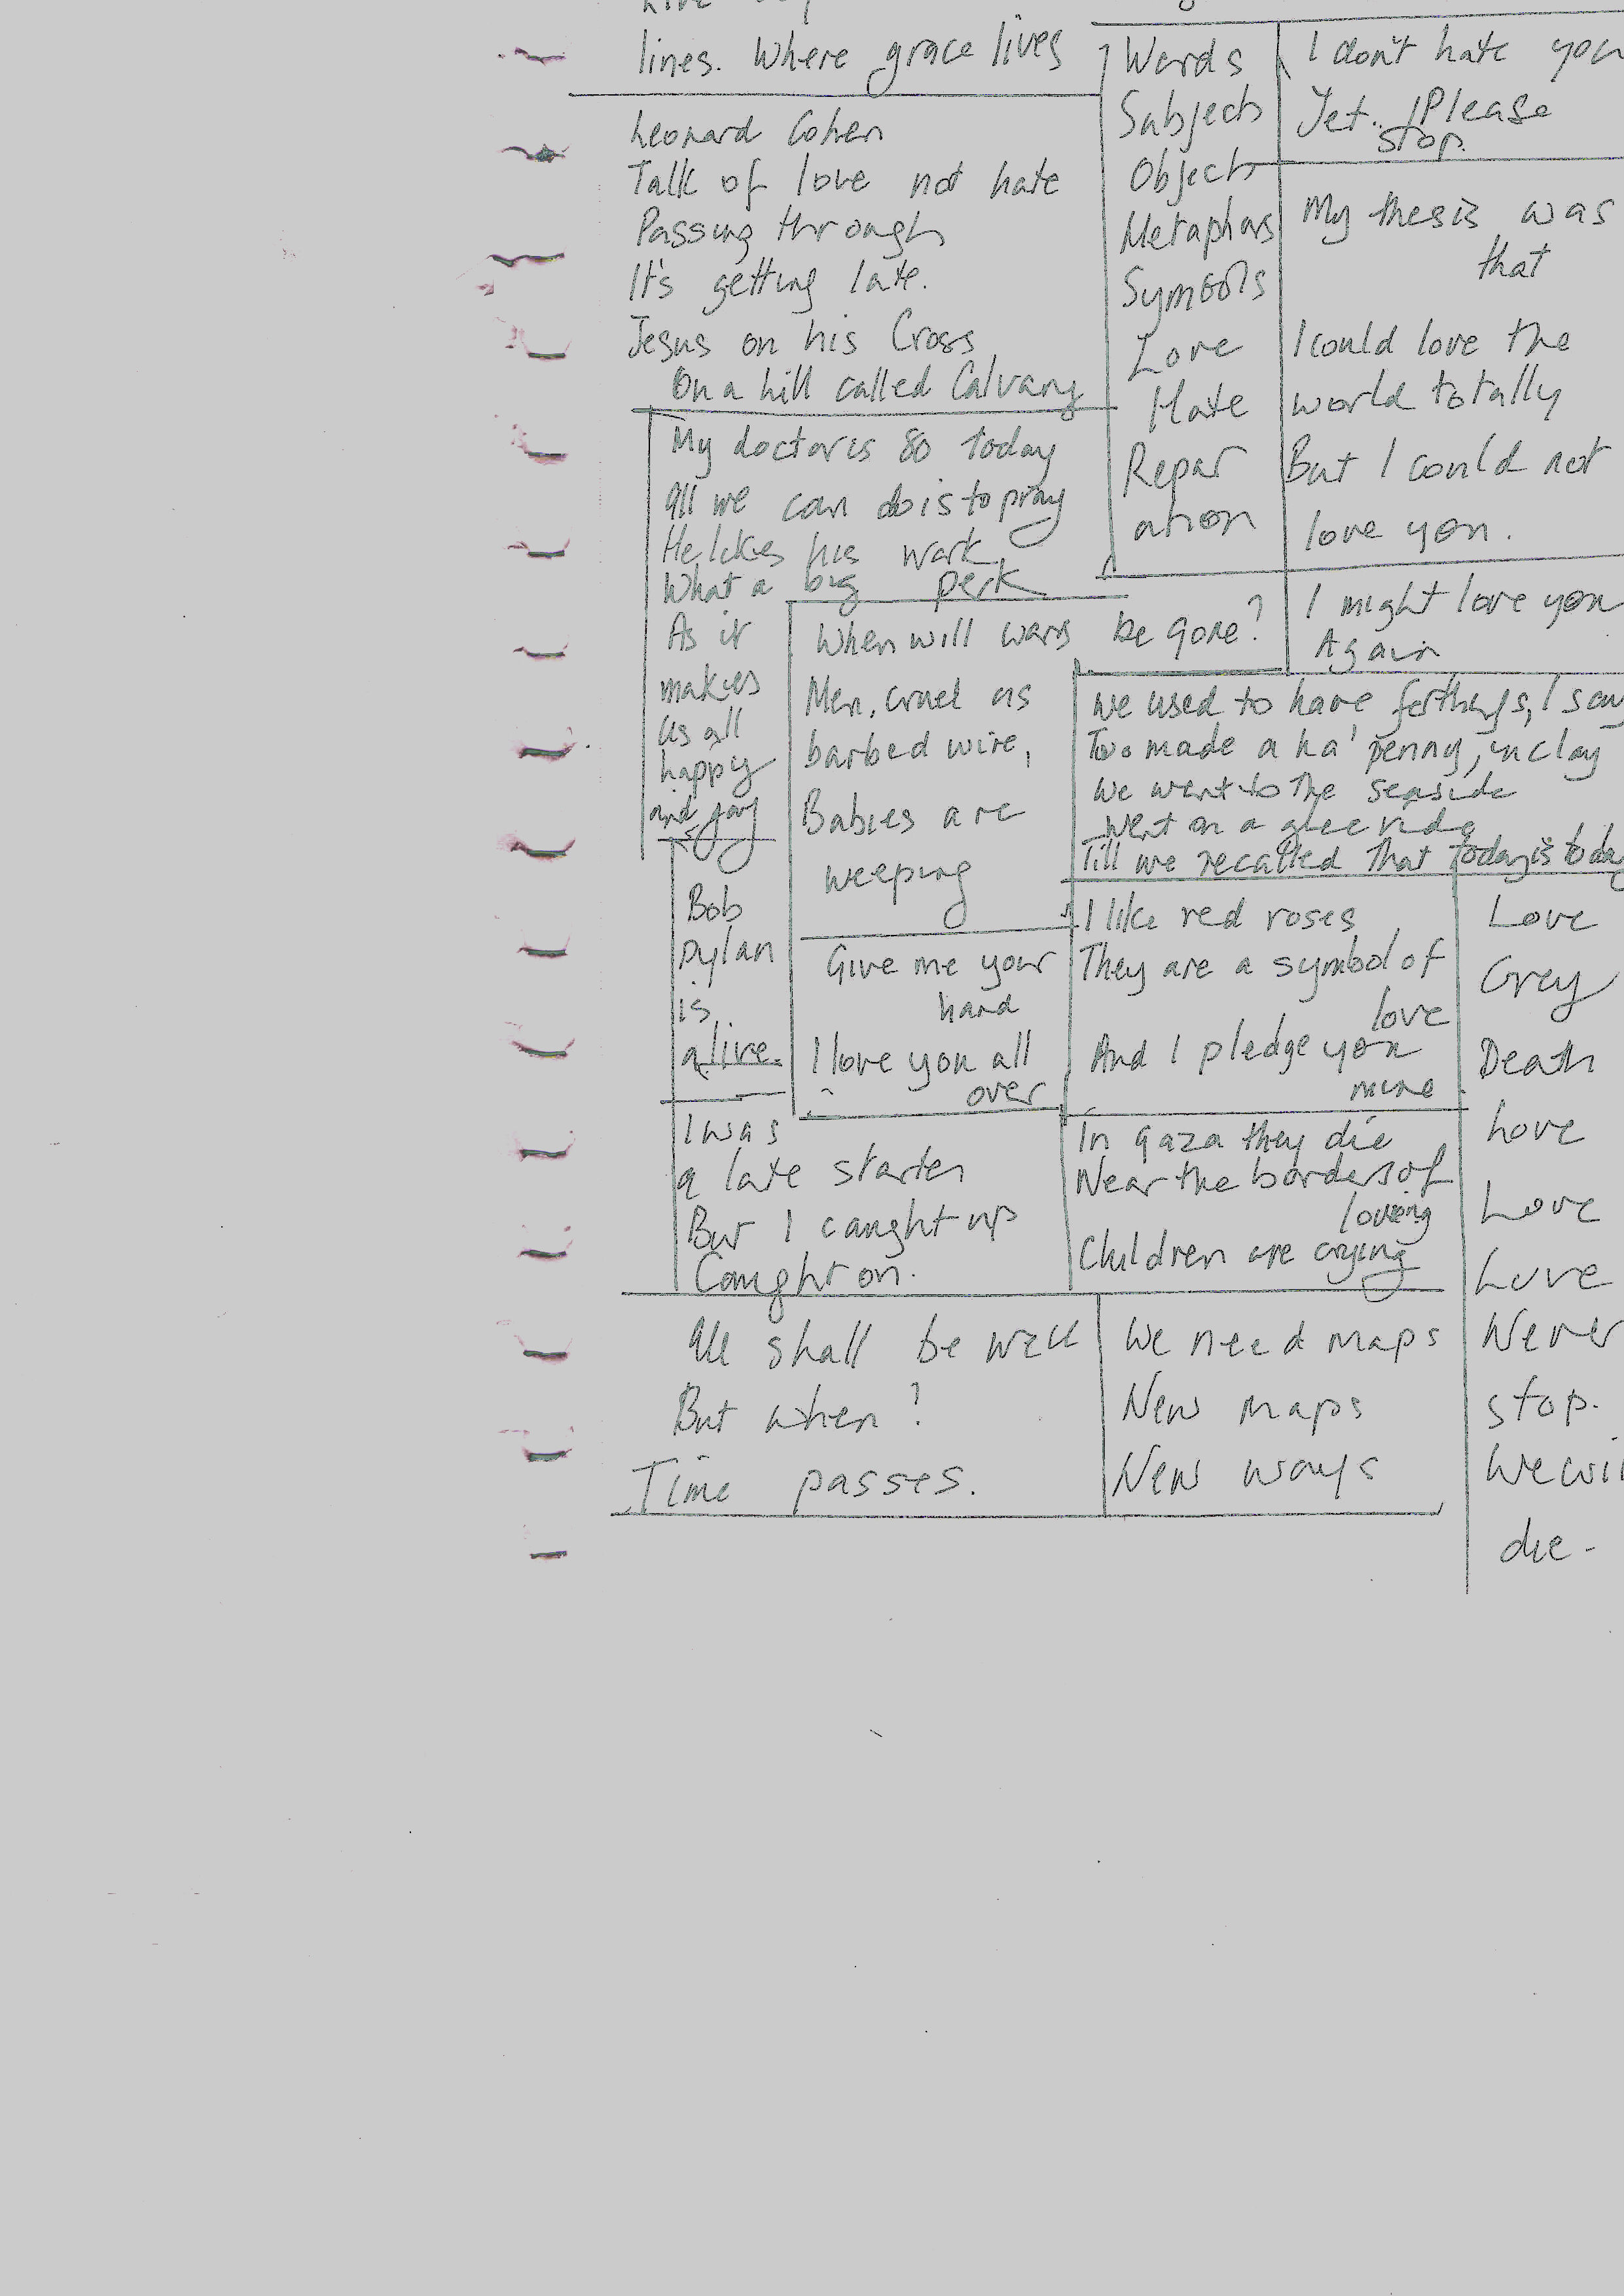 lines. Where grace lives
Leonard Cohen
Talk of love not hate
Passing through
It's getting late.
Jesus on his Cross
On a hill called Calvary
Words
Subjects
Objects
Metaphors
Symbols
Love
Hate
Repar
ation
I don't hate you
Yet.. Please
stop.
My thesis was
that
I could love the
world totally
But I could not
love you.
I might love you
Again
My doctor is 80 today
All we can do is to pray
He likes his work
What a big perk
As it
makes
us all
happy
and gay
When will wars be gone?
Men, cruel as
barbed wire,
Babies are
weeping
We used to have farthings, I say
Two made a ha'penny, in clay
We went to the seaside
Went on a glee ride
Till we recalled that today is today
Bob
Dylan
is
alive.
Give me your
hand
I love you all
over
I like red roses
They are a symbol of
love
And I pledge you
mine
Love
Grey
Death
Love
Love
Love
Never
stop.
We wil
die.
I was
a late starter
But I caught up
Caught on.
In Gaza they die
Near the borders of
loving
Children are crying
All shall be well
But when?
Time passes.
We need maps
New maps
New ways